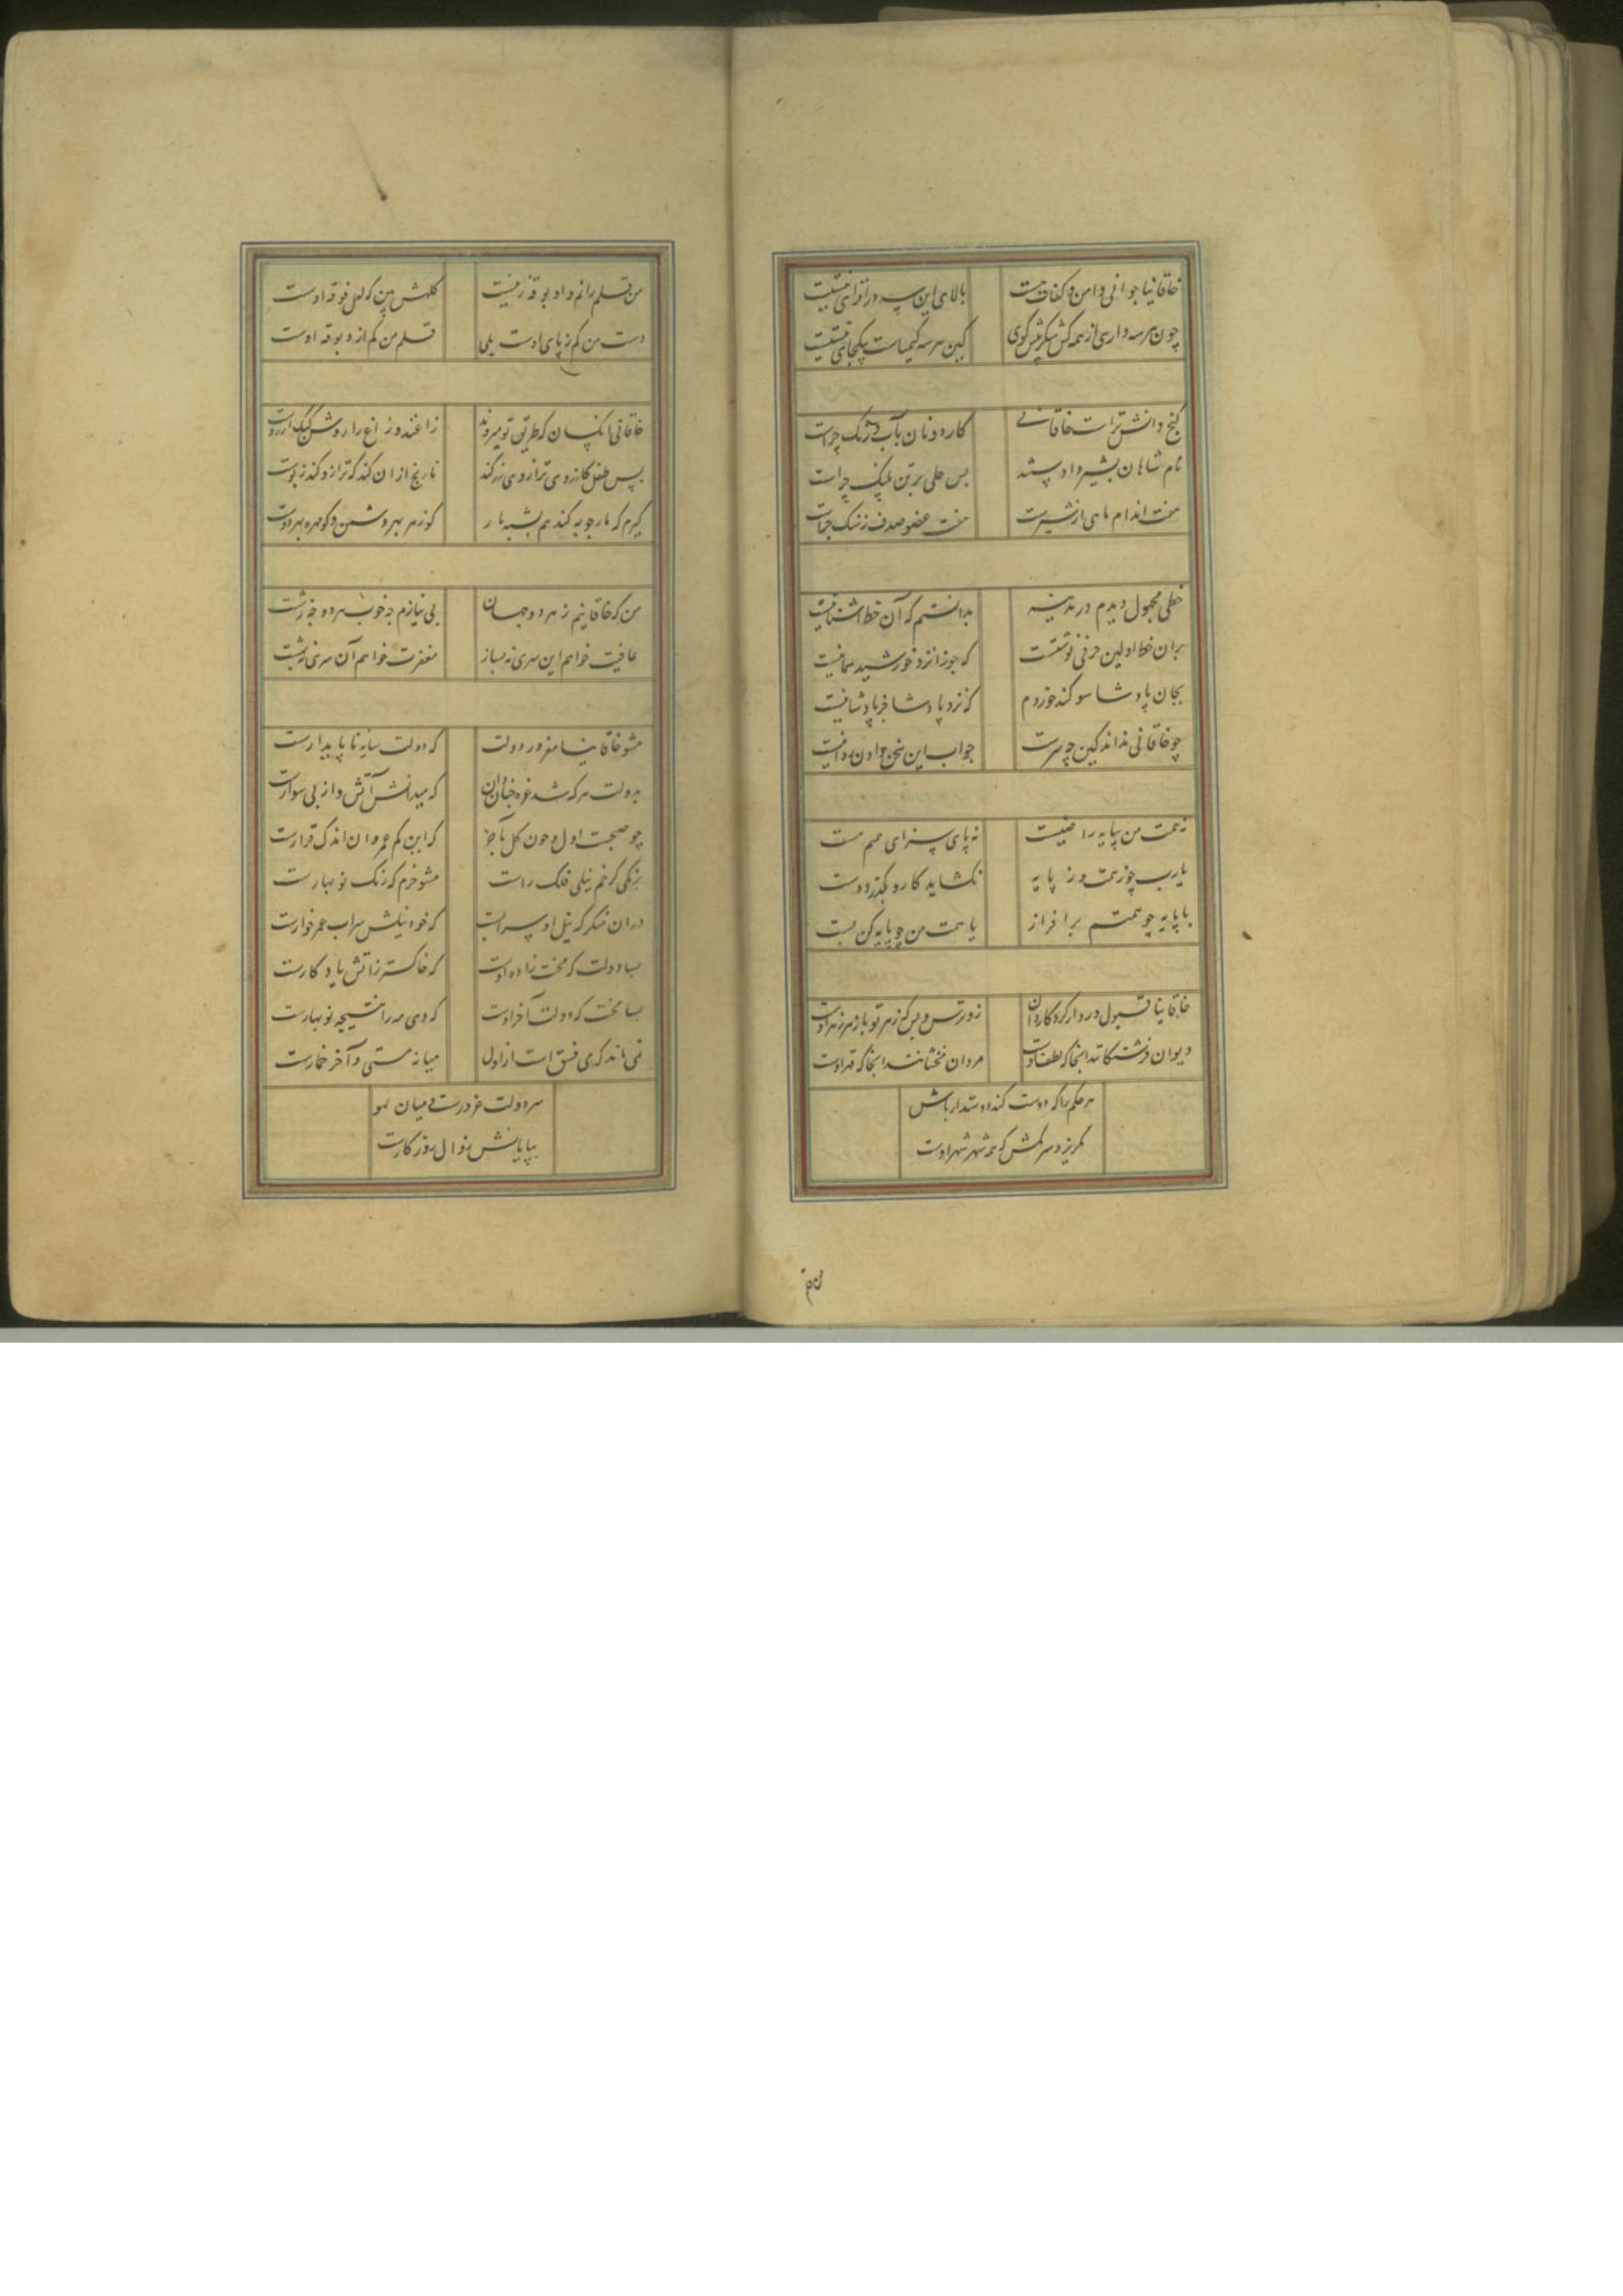 خاقانیا جوانی و امن و کفاف هست
بالای این سه در افزای نیست نیست
چون هر سه داری از همه کس شکر بیش گوی
کین هر سه کیمیاست بیکجای نیست نیست
گنج دانش تراست خاقانی
کار دونان بآب و رنگ چراست
نام شاهان بشیر داد پسند
بس حلی بر تن پلنگ چراست
هفت اندام ماهی از شیرست
هفت عضو صدف ز سنگ چراست
خطی مجهول دیدم در مدینه
بدانستم که آن خط آشنا نیست
بران خط اولین حرفی نوشتست
که جوزا نزد خورشید سما نیست
بجان پادشا سوکند خوردم
که نزد پادشا جز پادشا نیست
چو خاقانی نداند کین چه سرست
جواب این سخن دادن روا نیست
نه همت من بپایه راضیست
نه پای سزای همم هست
یارب چو ز همت و ز پایه
نکشاید کار و نکذرد دست
یا پایه چو همتم برافراز
یا همت من چو پایه کن پست
خاقانیا قبول و رد از کردکار دان
زو ترس و بس که زهر تو پازهر زهر اوست
دیوان فرشتکانند آنجا که لطف اوست
مردان مخنثانند آنجا که قهر اوست
هر حکم را که دوست کند دوستدار باش
مکریز و سر مکش که همه شهر شهر اوست
من قلم رانم و او بوقه زنیست
کلهش بین که لعل فوقه اوست
دست من کم ز پای اوست بلی
قلم من کم از دبوقه اوست
خاقانی آنکسان که طریق تو میروند
زاغند و زاغ را روش کبک آرزوست
بس طفل کارزوی ترازوی زر کند
نارنج از آن کند که ترازو کند ز پوست
گیرم که مار چوبه کند هم بشبه مار
کو زهر بهر دشمن و کو مهره بهر دوست
من که خاقانیم ز هر دو جهان
بی نیازم چه خوب هر دو چه زشت
عافیت خواهم این سری نه بساز
مغفرت خواهم آن سری نه بهشت
مشو خاقانیا مغرور دولت
که دولت سایه ناپایدارست
بدولت هر که شد غره چنان دان
که میدانش آتش و او نی سوارست
چو صبحست اول و چون کل بآخر
که این کم عمر و آن اندک قرارست
برنکی کز خم نیلی فلک راست
مشو خرم که رنک نوبهارست
در آن منکر که نیل او سرابست
که خود نیلش سراب عمر خوارست
بسا دولت که محنت زاده اوست
که خاکستر ز آتش یادکارست
بسا محنت که دولت آخر اوست
که دی مه را نتیجه نوبهارست
نمی ماند کرمی فسق است از اول
میانه مستی و آخر خمارست
سر دولت غرورست و میان لهو
بپایانش زوال روزکارست
من قلم